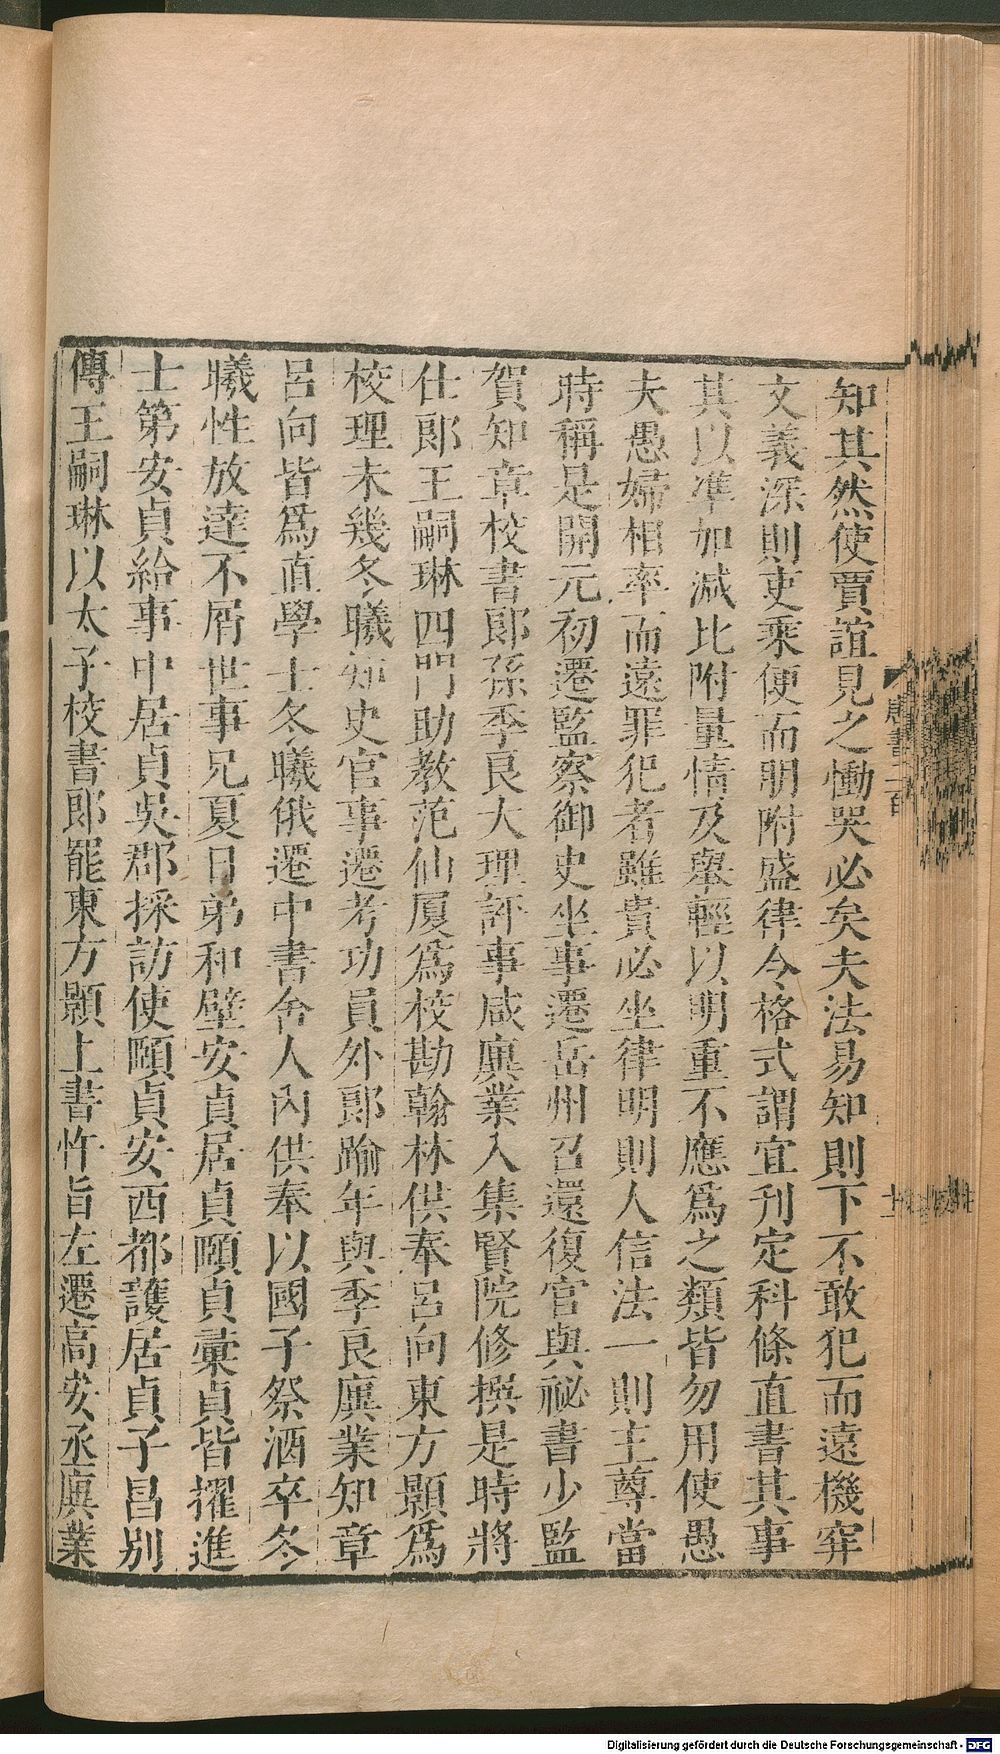 知其然使賈誼見之慟哭必矣夫法易知則下不敢犯而遠機穽
文義深則吏乘便而朋附盛律令格式謂宜刊定科條直書其事
其以準加減比附量情及舉輕以明重不應爲之類皆勿用使愚
夫愚婦相率而遠罪犯者雖貴必坐律明則人信法一則主尊當
時稱是開元初遷監察御史坐事遷岳州召還復官與祕書少監
賀知章校書郎孫季良大理評事咸廙業入集賢院修撰是時將
仕郎王嗣琳四門助教范仙厦爲校勘翰林供奉呂向東方顥爲
校理未幾冬曦知史官事遷考功員外郎踰年與季良廙業知章
呂向皆爲直學士冬曦俄遷中書舍人內供奉以國子祭酒卒冬
曦性放達不屑世事兄夏日弟和璧安貞居貞頤貞彙貞皆擢進
士第安貞給事中居貞吳郡採訪使頤貞安西都護居貞子昌別
傳王嗣琳以太子校書郎罷東方顥上書忤旨左遷高安丞廙業
唐書二百
Digitalisierung gefördert durch die Deutsche Forschungsgemeinschaft - DFG